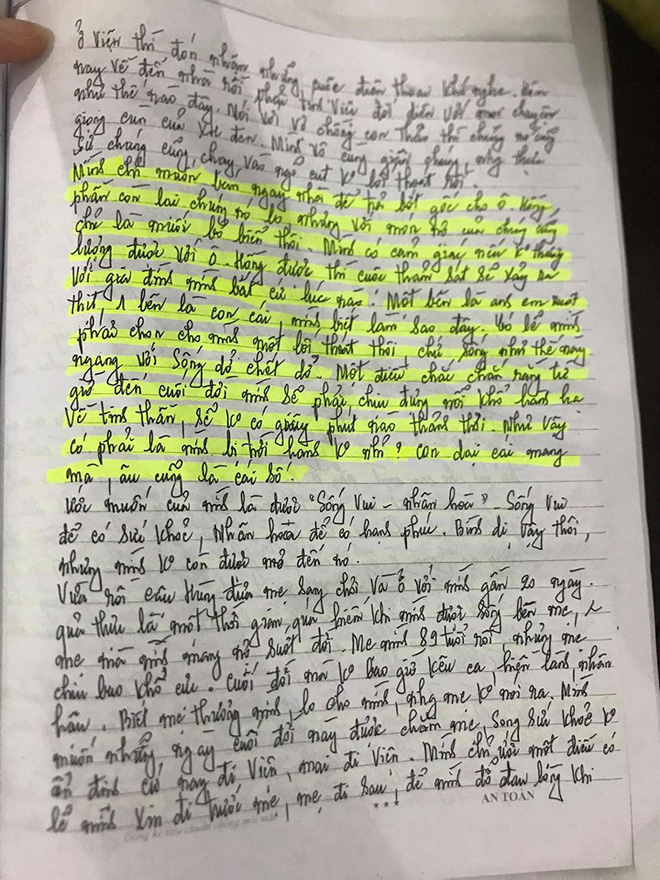 ở viện thì đón nhận những cuộc điện thoại khó nghe. Hôm
nay về đến nhà rồi phải trực tiếp đối diện với mọi chuyện
như thế nào đây. Nói với vợ chồng con Thảo thì chúng nó cũng
giọng cùn của XH đen. Mình vô cùng giận chúng, nhg thực
sự chúng cũng chạy vào ngõ cụt ko lối thoát rồi.
Mình chỉ muốn bán ngay nhà để trả bớt gốc cho ô Hồng
phần còn lại chúng nó lo nhưng với món nợ của chúng cũng
chỉ là muối bỏ biển thôi. Mình có cảm giác nếu ko thương
lượng được với ô Hồng được thì cuộc thảm sát sẽ xảy ra
với gia đình mình bất cứ lúc nào. Một bên là anh em ruột
thịt, 1 bên là con cái, mình biết làm sao đây. Có lẽ mình
phải chọn cho mình một lối thoát thôi, chứ sống như thế này
ngang với sống dở chết dở. Một điều chắc chắn rằng từ
giờ đến cuối đời mình sẽ phải chịu đựng nỗi khổ hành hạ
về tinh thần, sẽ ko có giây phút nào thảnh thơi. Như vậy
có phải là mình bị trời hành ko nhỉ? con dại cái mang
mà, âu cũng là cái số.
Ước muốn của mình là được "Sống vui - nhân hoà" - Sống vui
để có sức khoẻ, Nhân hoà để có hạnh phúc. Bình dị vậy thôi,
nhưng mình ko còn được mơ đến nó.
Vừa rồi cậu Hùng đưa mẹ sang chơi và ở với mình gần 20 ngày.
quả thực là một thời gian quá hiếm khi mình được sống bên mẹ,
mẹ mà mình mang nợ suốt đời. Mẹ mình 89 tuổi rồi, nhưng mẹ
chịu bao khổ cực. Cuối đời mà ko bao giờ kêu ca, hiền lành nhân
hậu. Biết mẹ thương mình, lo cho mình, nhg mẹ ko nói ra. Mình
muốn những ngày cuối đời này được chăm mẹ, song sức khoẻ ko
ổn định cứ nay đi viện, mai đi viện. Mình chỉ ước một điều có
lẽ mình xin đi trước mẹ, mẹ đi sau, để mình đỡ đau lòng khi
***
AN TOÀN